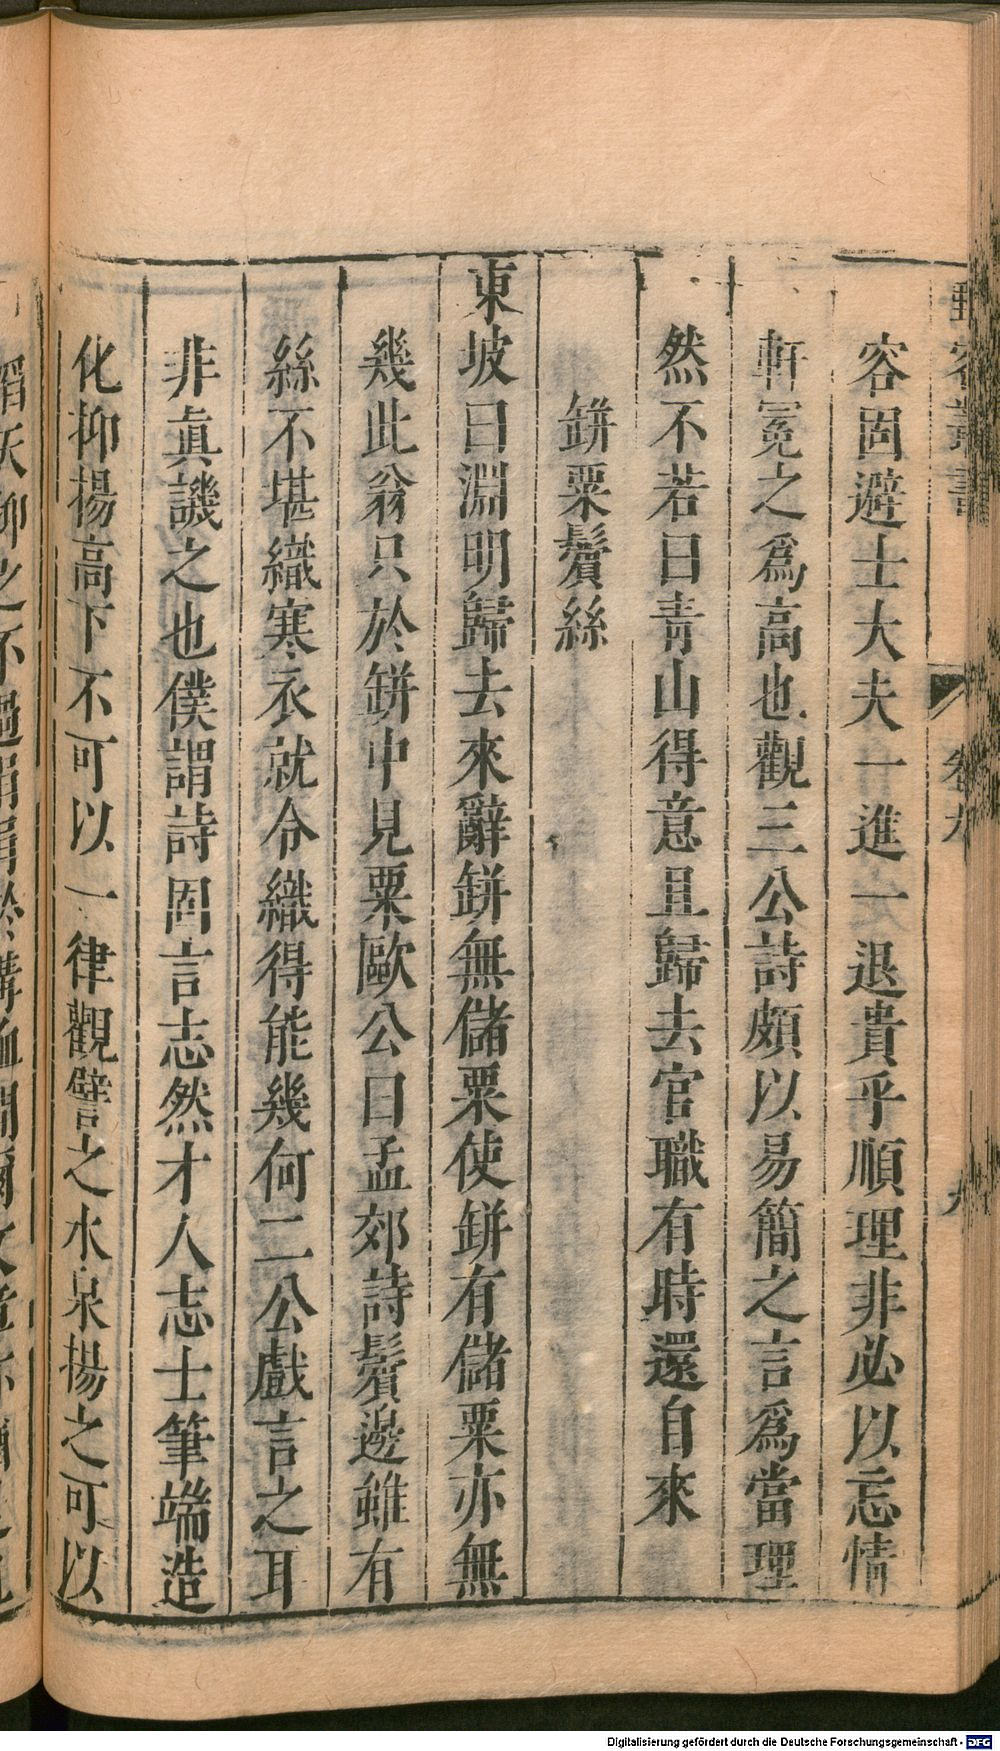 野客叢書 卷九 九
容固避士大夫一進一退貴乎順理非必以忘情
軒冕之爲高也觀三公詩頗以易簡之言爲當理
然不若曰青山得意且歸去官職有時還自來
缾粟鬢絲
東坡曰淵明歸去來辭缾無儲粟使缾有儲粟亦無
幾此翁只於缾中見粟歐公曰孟郊詩鬢邊雖有
絲不堪織寒衣就令織得能幾何二公戲言之耳
非眞譏之也僕謂詩固言志然才人志士筆端造
化抑揚高下不可以一律觀譬之水泉揚之可以
Digitalisierung gefördert durch die Deutsche Forschungsgemeinschaft - DFG